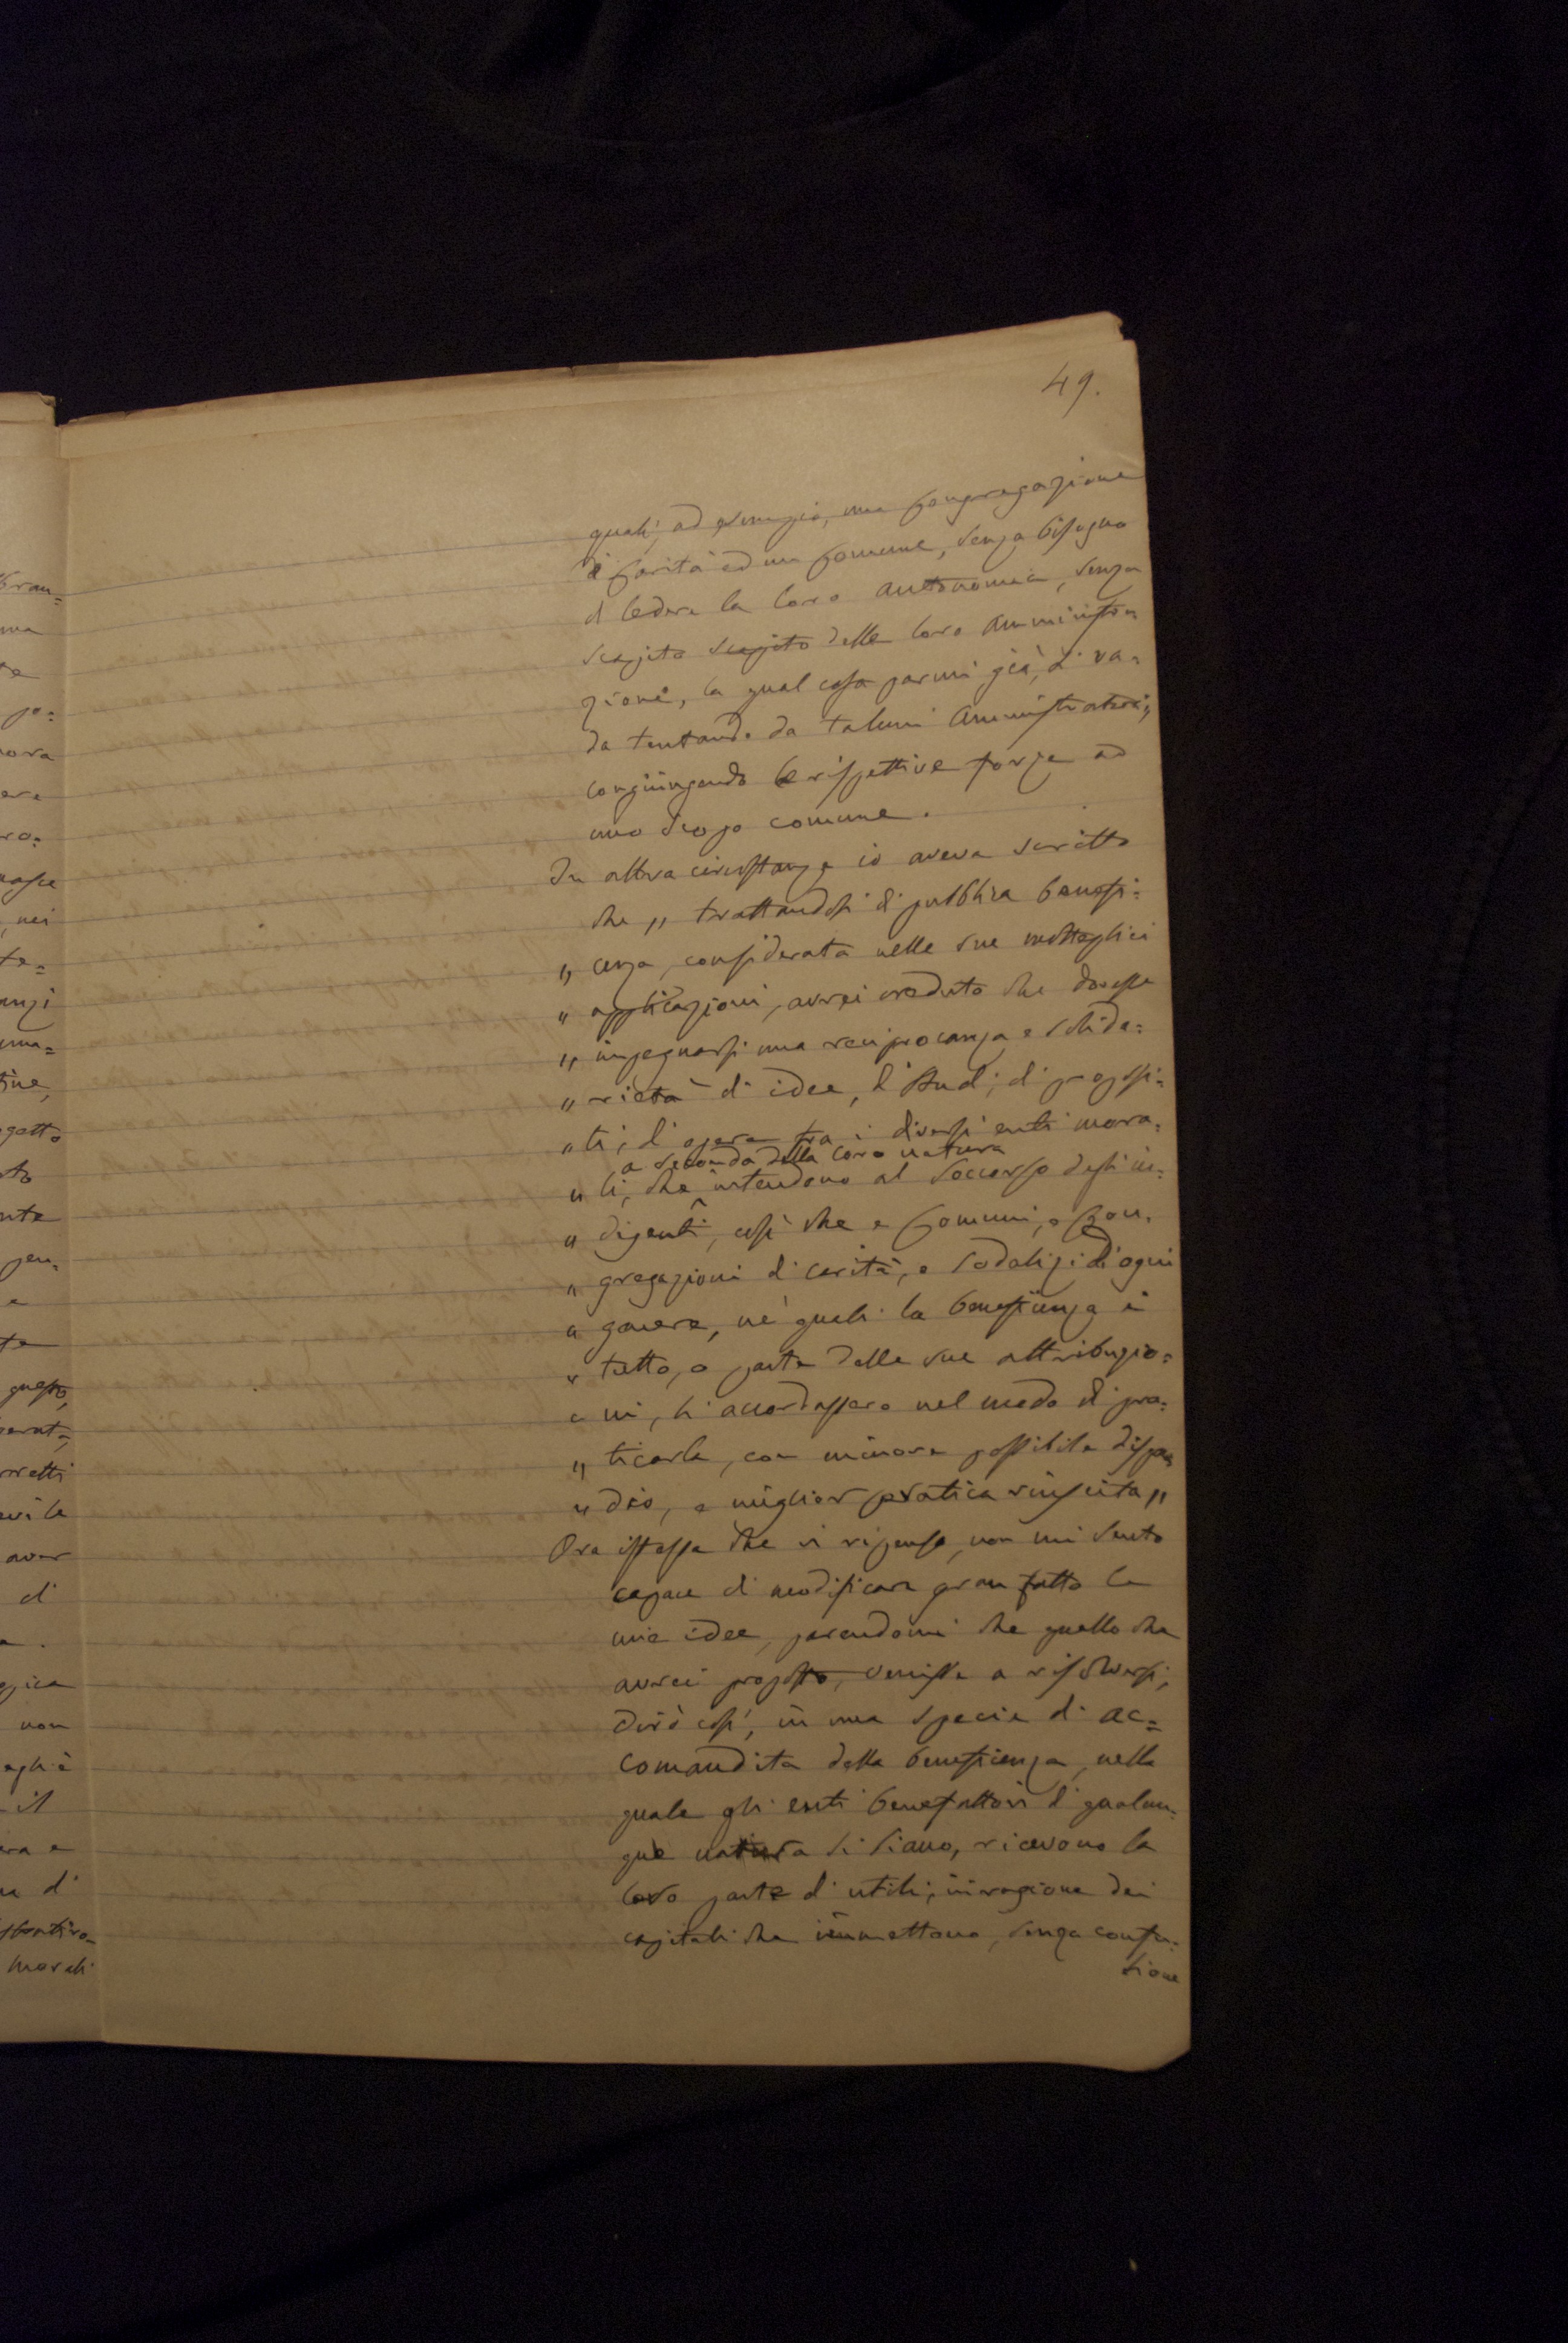 49.
quali, ad esempio, una Congregazione
di Carità ed un Comune, senza bisogno
di ledere la loro autonomia, senza
scapito scapito delle loro amministra=
zioni, la qual cosa parmi già, si va=
da tentando da taluni Amministratori,
congiungendo le rispettive forze ad
uno scopo comune.
In altra circostanza io aveva scritto
che „ trattandosi di pubblica benefi=
„ cenza, considerata nelle sue molteplici
„ applicazioni, avrei creduto che dovesse
„ impegnarsi una reciprocanza e solida=
„ rietà di idee, di studi, di propossi=
„ ti, di opere tra i diversi enti mora=
a seconda della loro natura
„ li, che intendono al soccorso degli in=
„ digenti, così che e Comuni, e Con=
„ gregazioni di carità, e sodalizi di ogni
„ genere, ne' quali la beneficienza è
„ tutto, o parte delle sue attribuzio=
„ ni, si accordassero nel modo di pra=
„ ticarla, con minore possibile dispen
„ dio, e miglior pratica riuscita „
Ora istessa che vi ripenso, non mi sento
capace di modificare gran fatto le
mie idee, parendomi che quello che
avrei proposto, venisse a risolversi,
dirò così, in una specie di ac=
comandita della beneficienza, nella
quale gli enti benefattori di qualun=
que natura si siano, ricevono la
loro parte di utili, in ragione dei
capitali che immettono, senza confu=
sione
bran=
ma
te
po=
ora
ere
ro=
nasce
, nei
te=
anzi
ma=
tine,
getto
to
nte
pen=
e
te
questo,
perat=
rretti
vile
aver
di
a.
gica
non
egli è
il
era e
a di
morali